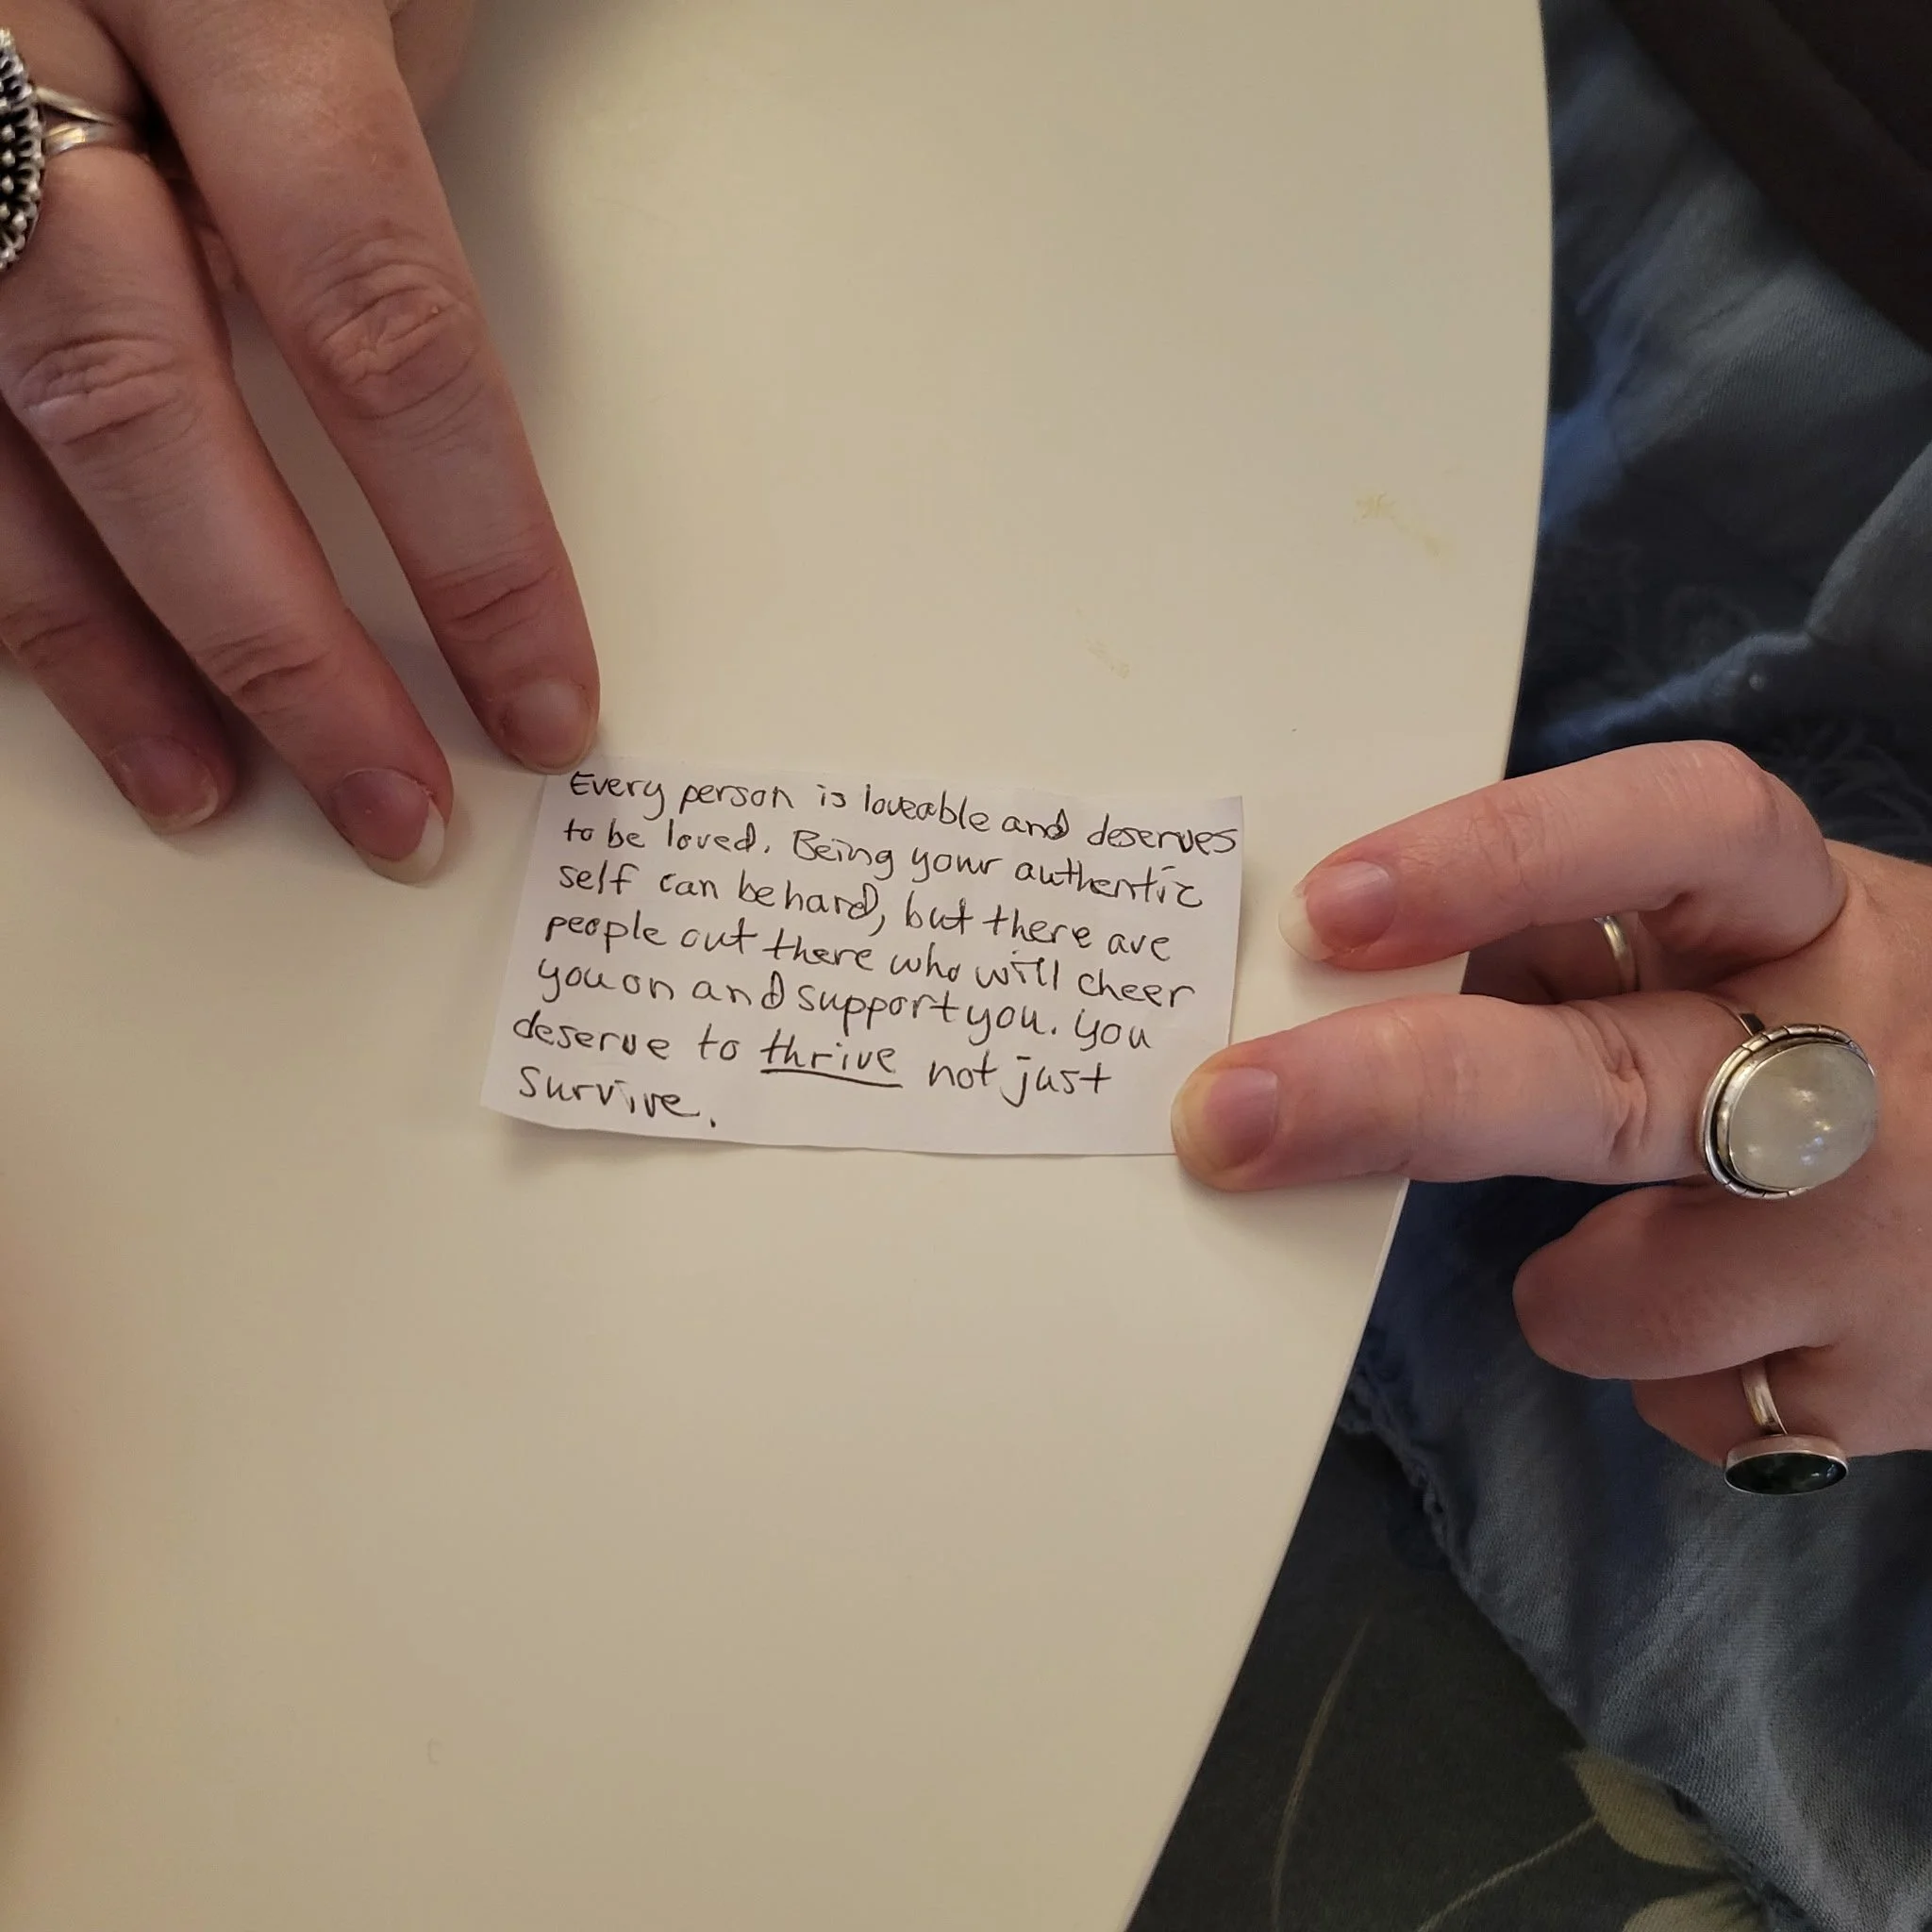 Every person is loveable and deserves
to be loved. Being your authentic
self can be hard, but there are
people out there who will cheer
you on and support you. you
deserve to thrive not just
survive.